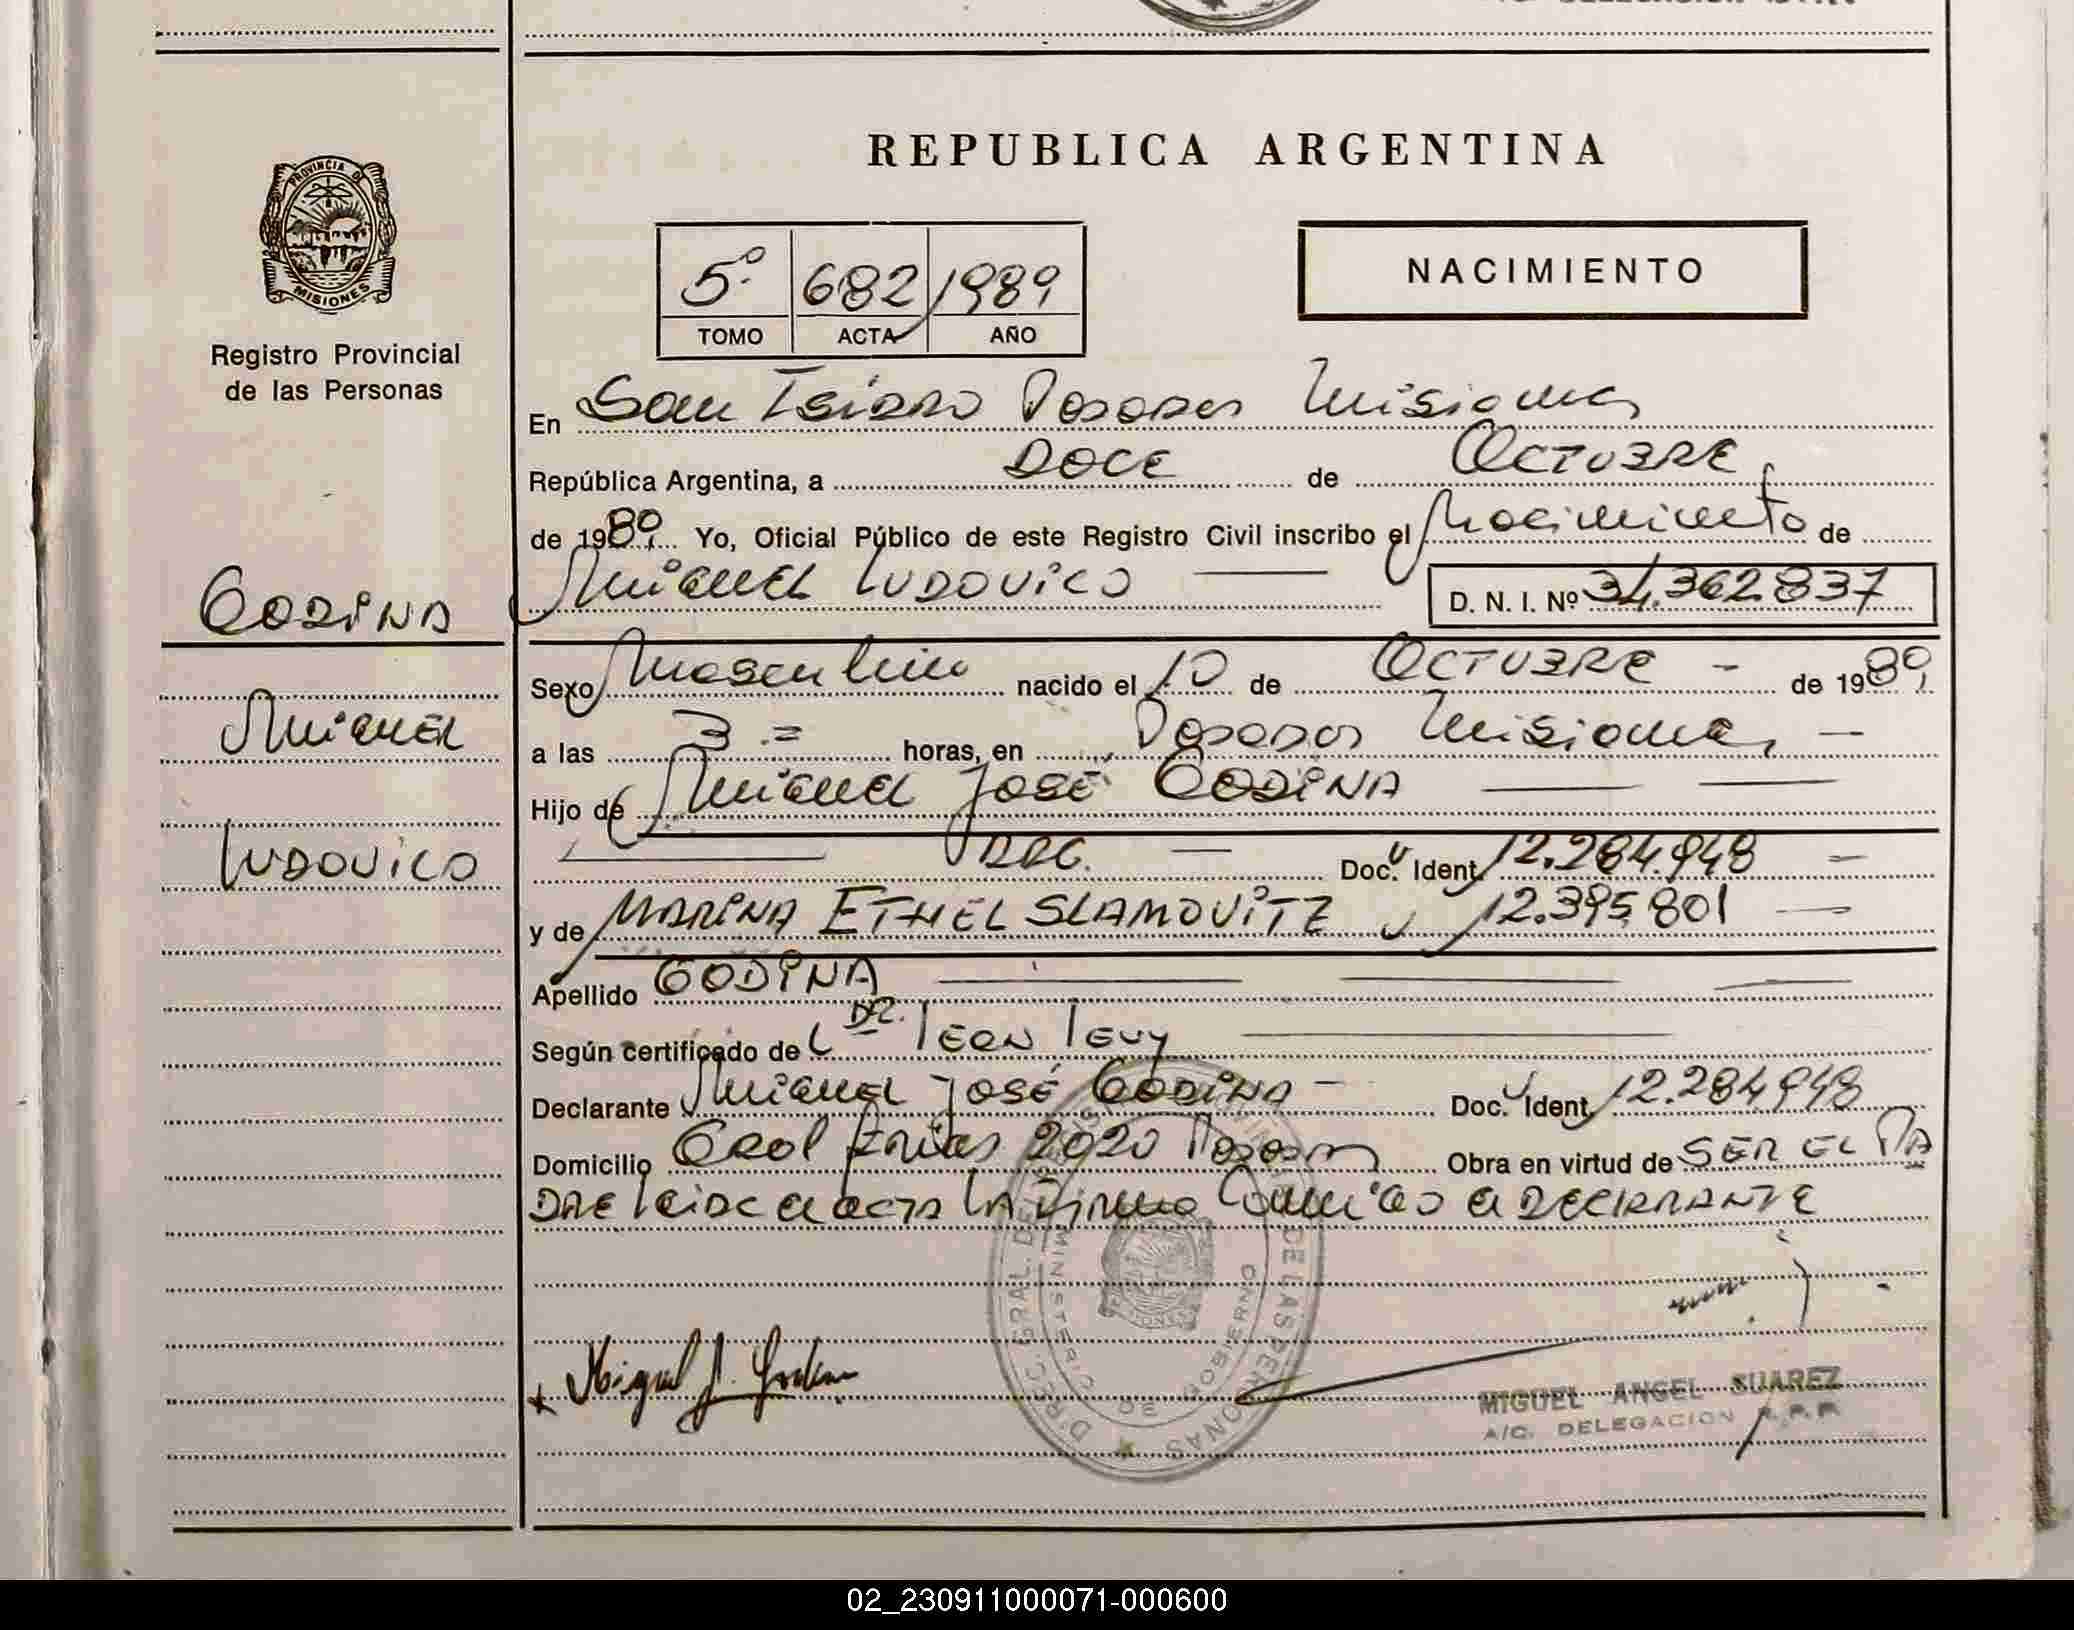 PROVINCIA DE
MISIONES
Registro Provincial
de las Personas
GODINA
Miguel
Ludovico
REPUBLICA ARGENTINA
5º 682 1989
TOMO ACTA AÑO
NACIMIENTO
En San Isidro Posadas Misiones
República Argentina, a DOCE de OCTUBRE
de 1989. Yo, Oficial Público de este Registro Civil inscribo el Nacimiento de
Miguel Ludovico — D. N. I. Nº 34.362.837
Sexo Masculino nacido el 10 de OCTUBRE - de 1989
a las 3.= horas, en Posadas Misiones —
Hijo de Miguel José GODINA — —
— ARG. — Doc. Ident. 12.284.948 —
y de MARINA ETHEL SLAMOVITZ 12.395.801 —
Apellido GODINA — — —
Según certificado de DR. —
Declarante Miguel José GODINA - Doc. Ident. 12.284.948
Domicilio Frias 2020 Posadas Obra en virtud de SER EL PA
DRE Leida el acta LA Firma Conmigo el DECLARANTE
Miguel J. Godina
MINISTERIO DE GOBIERNO
MIGUEL ANGEL SUAREZ
A/C. DELEGACION R.P.P.
02_230911000071-000600